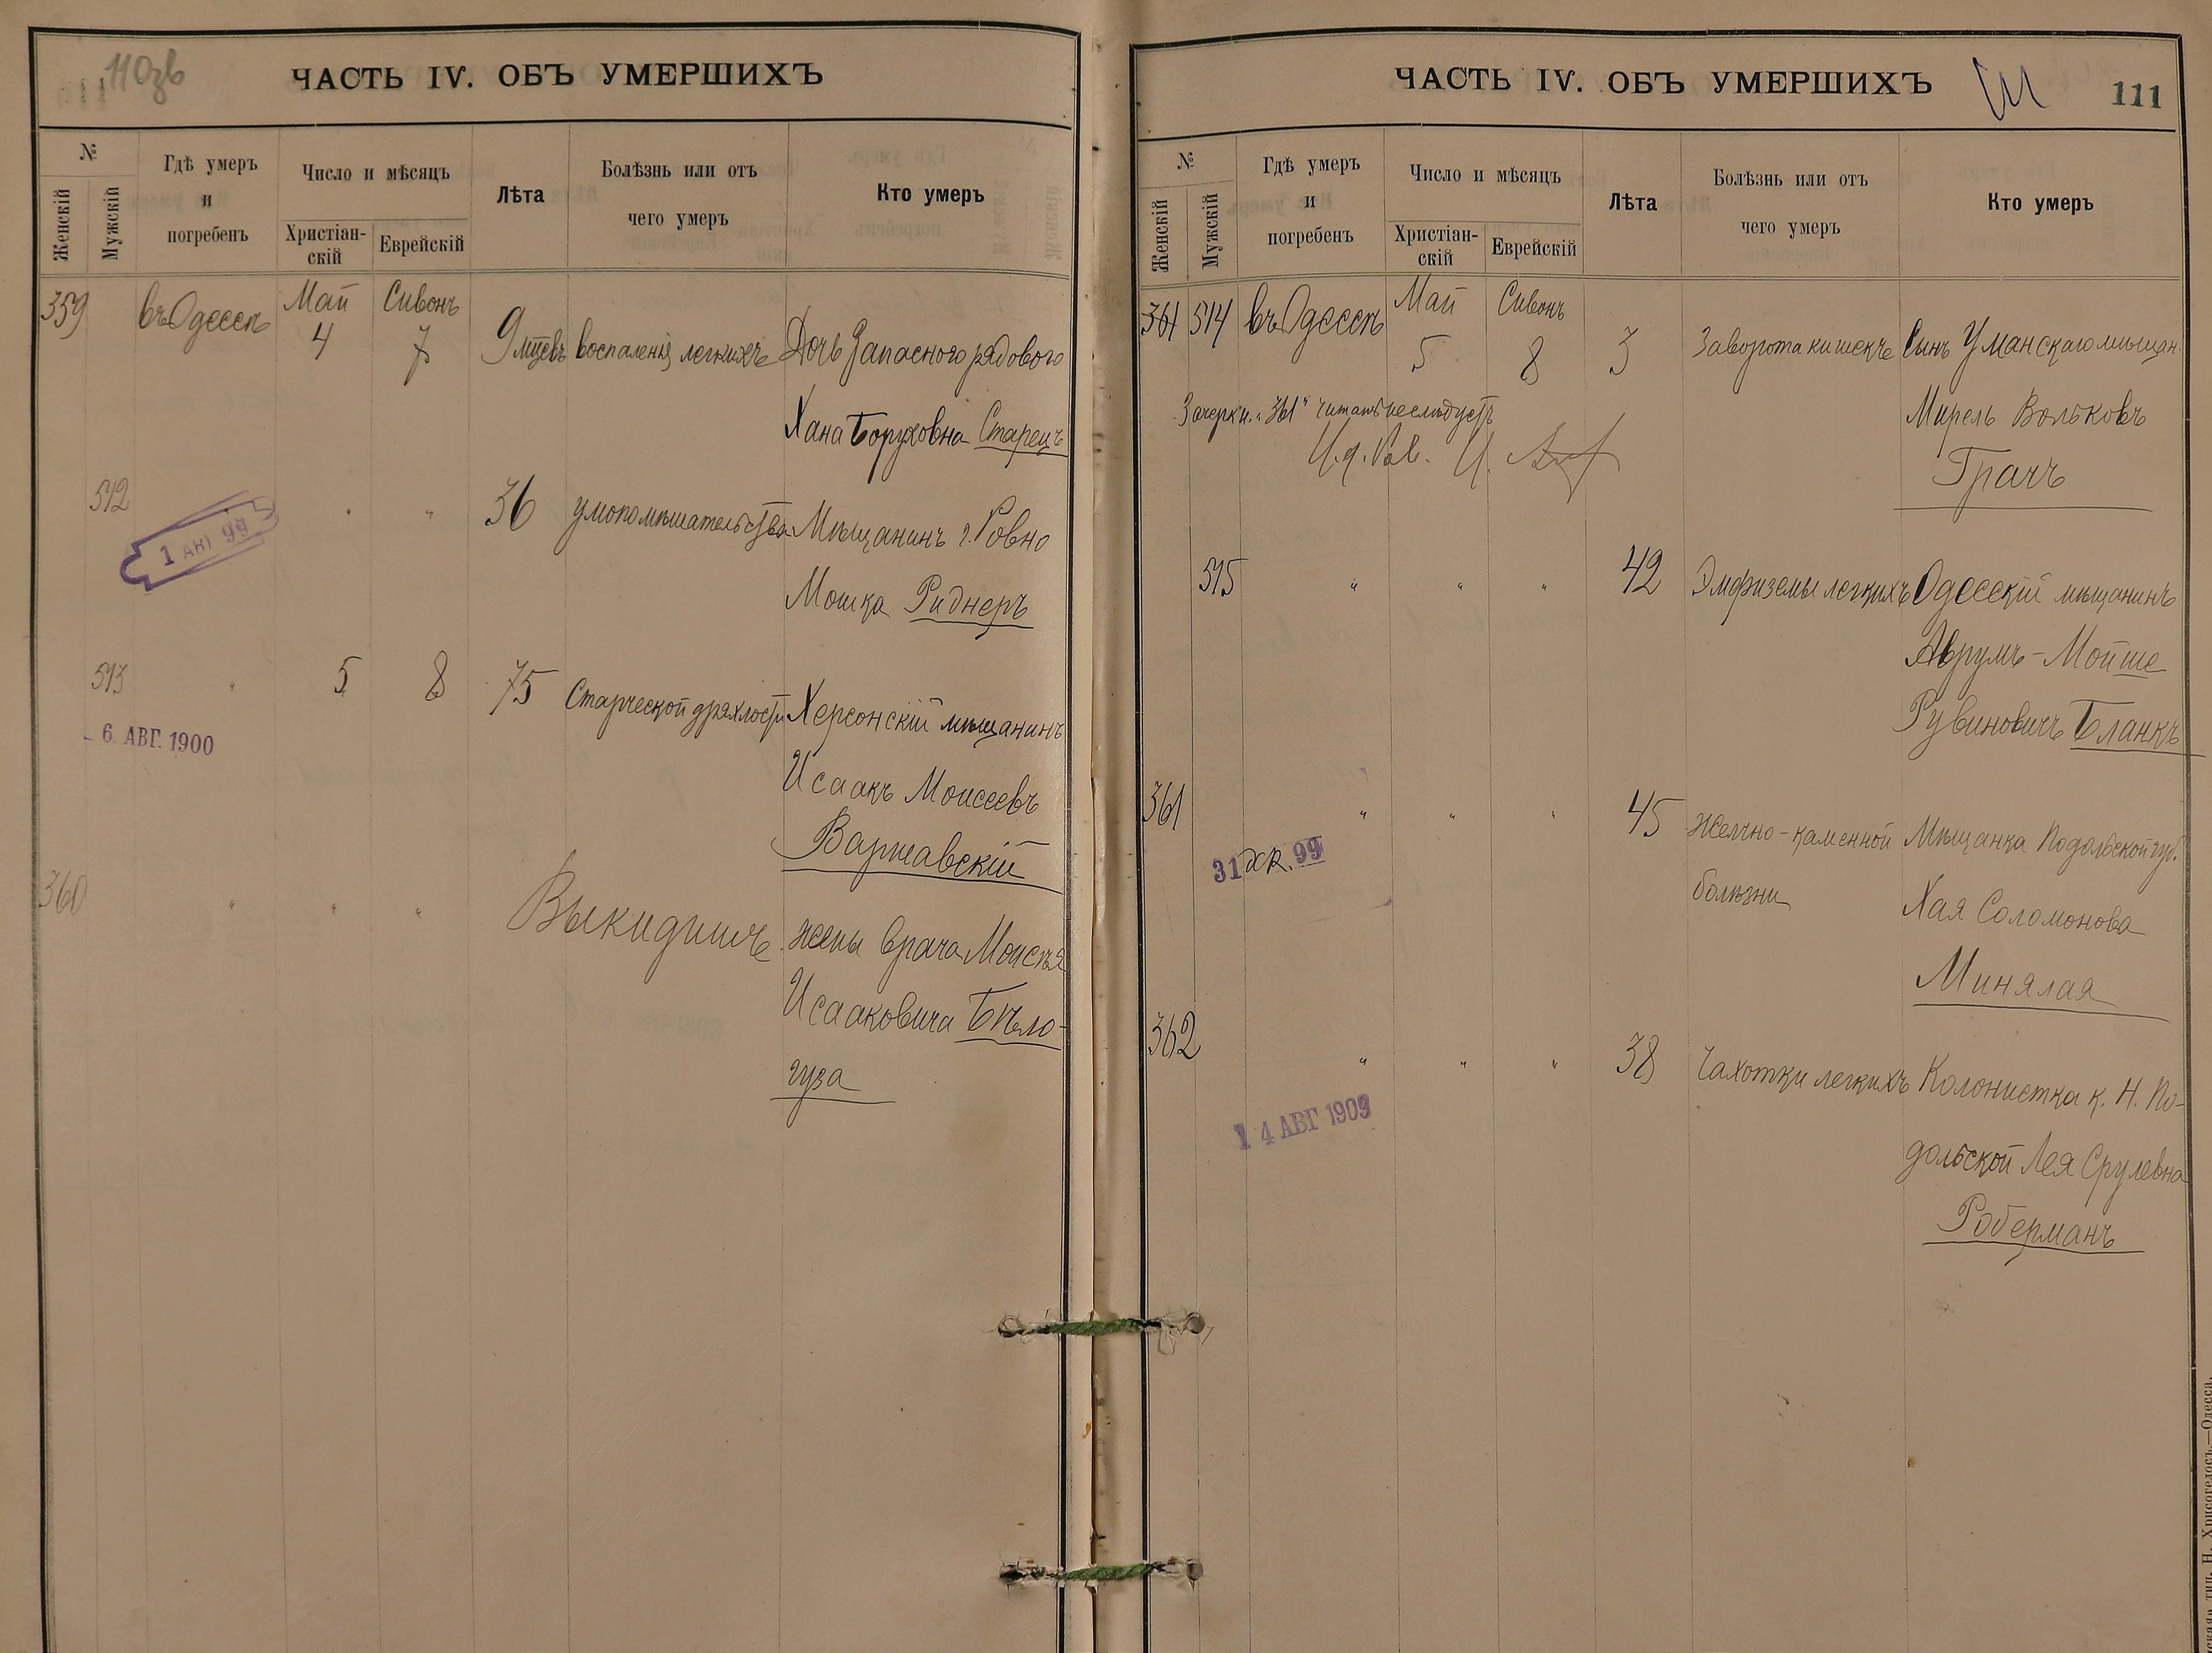 110зв
ЧАСТЬ IV. ОБЪ УМЕРШИХЪ
№
Женскій
Мужскій
Гдѣ умеръ
и
погребенъ
Число и мѣсяцъ
Христіан-
скій
Еврейскій
Лѣта
Болѣзнь или отъ
чего умеръ
Кто умеръ
359 въ Одессѣ Май Сивонъ
4 7 9 мцевъ воспаленія легкихъ Дочь Запаснаго рядового
Хана Боруховна Старецъ
512 " " 36 умопомѣшательства Мѣщанинъ г. Ровно
1 АВГ 99
Мошка Риднеръ
513 " 5 8 75 Старческой дряхлости Херсонскій мѣщанинъ
6. АВГ. 1900
Исаакъ Моисеевъ
Варшавскій
360 " " " Выкидышъ жены врача Моисея
Исааковича Бѣло-
гуза
ЧАСТЬ IV. ОБЪ УМЕРШИХЪ
111
№
Женскій
Мужскій
Гдѣ умеръ
и
погребенъ
Число и мѣсяцъ
Христіан-
скій
Еврейскій
Лѣта
Болѣзнь или отъ
чего умеръ
Кто умеръ
361 514 въ Одессѣ Май Сивонъ
5 8 3 Заворота кишекъ Сынъ Уманскаго мѣщан.
Зачеркн. "361" читать неслѣдуетъ
И. д. Рав. И.
Мирель Вольковъ
Грачъ
515 " " " 42 Эмфиземы легкихъ Одесскій мѣщанинъ
Аврумъ-Мойше
Рувиновичъ Бланкъ
361 " " " 45 Желчно-каменной Мѣщанка Подольской губ.
31 99
болѣзни Хая Соломонова
Минялая
362 " " " 38 Чахотки легкихъ Колонистка к. Н. По-
14 АВГ 1909
дольской Лея Срулевна
Роберманъ
тип. Н. Хрисогелосъ.—Одесса.